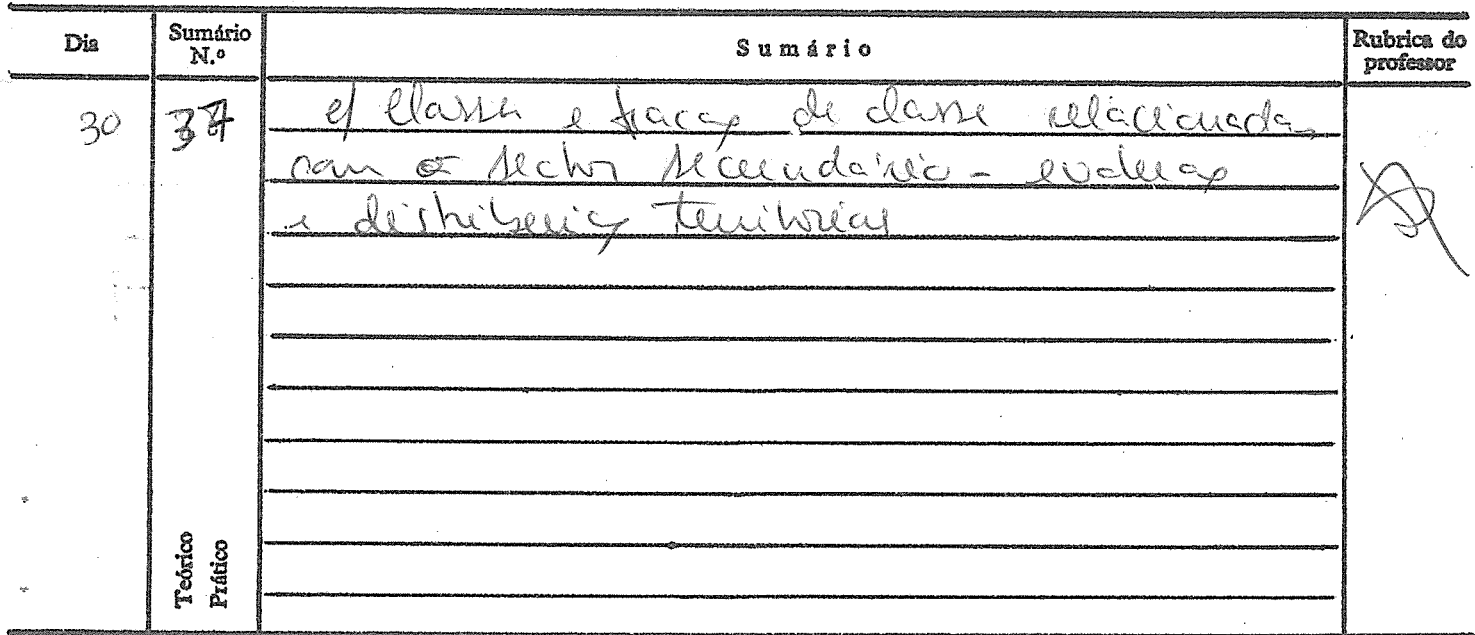 Dia
Sumário N.º
Sumário
Rubrica do professor
30
37
e/ classes e fracções de classe relacionadas
com o sector secundário - evolução
e distribuição territorial
Teórico
Prático